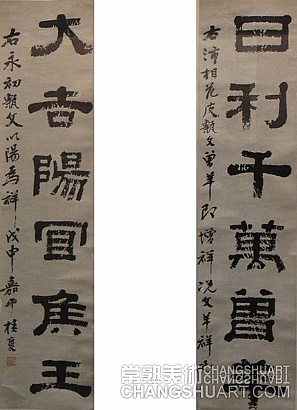 日利千萬曾羊
右沛相范皮甎文曾羊即增祥説文羊祥
大吉陽宜侯王
右永初甎文以陽為祥戊申嘉平桂馥
常熟美術
CHANGSHUART
CHANGSHUART.COM